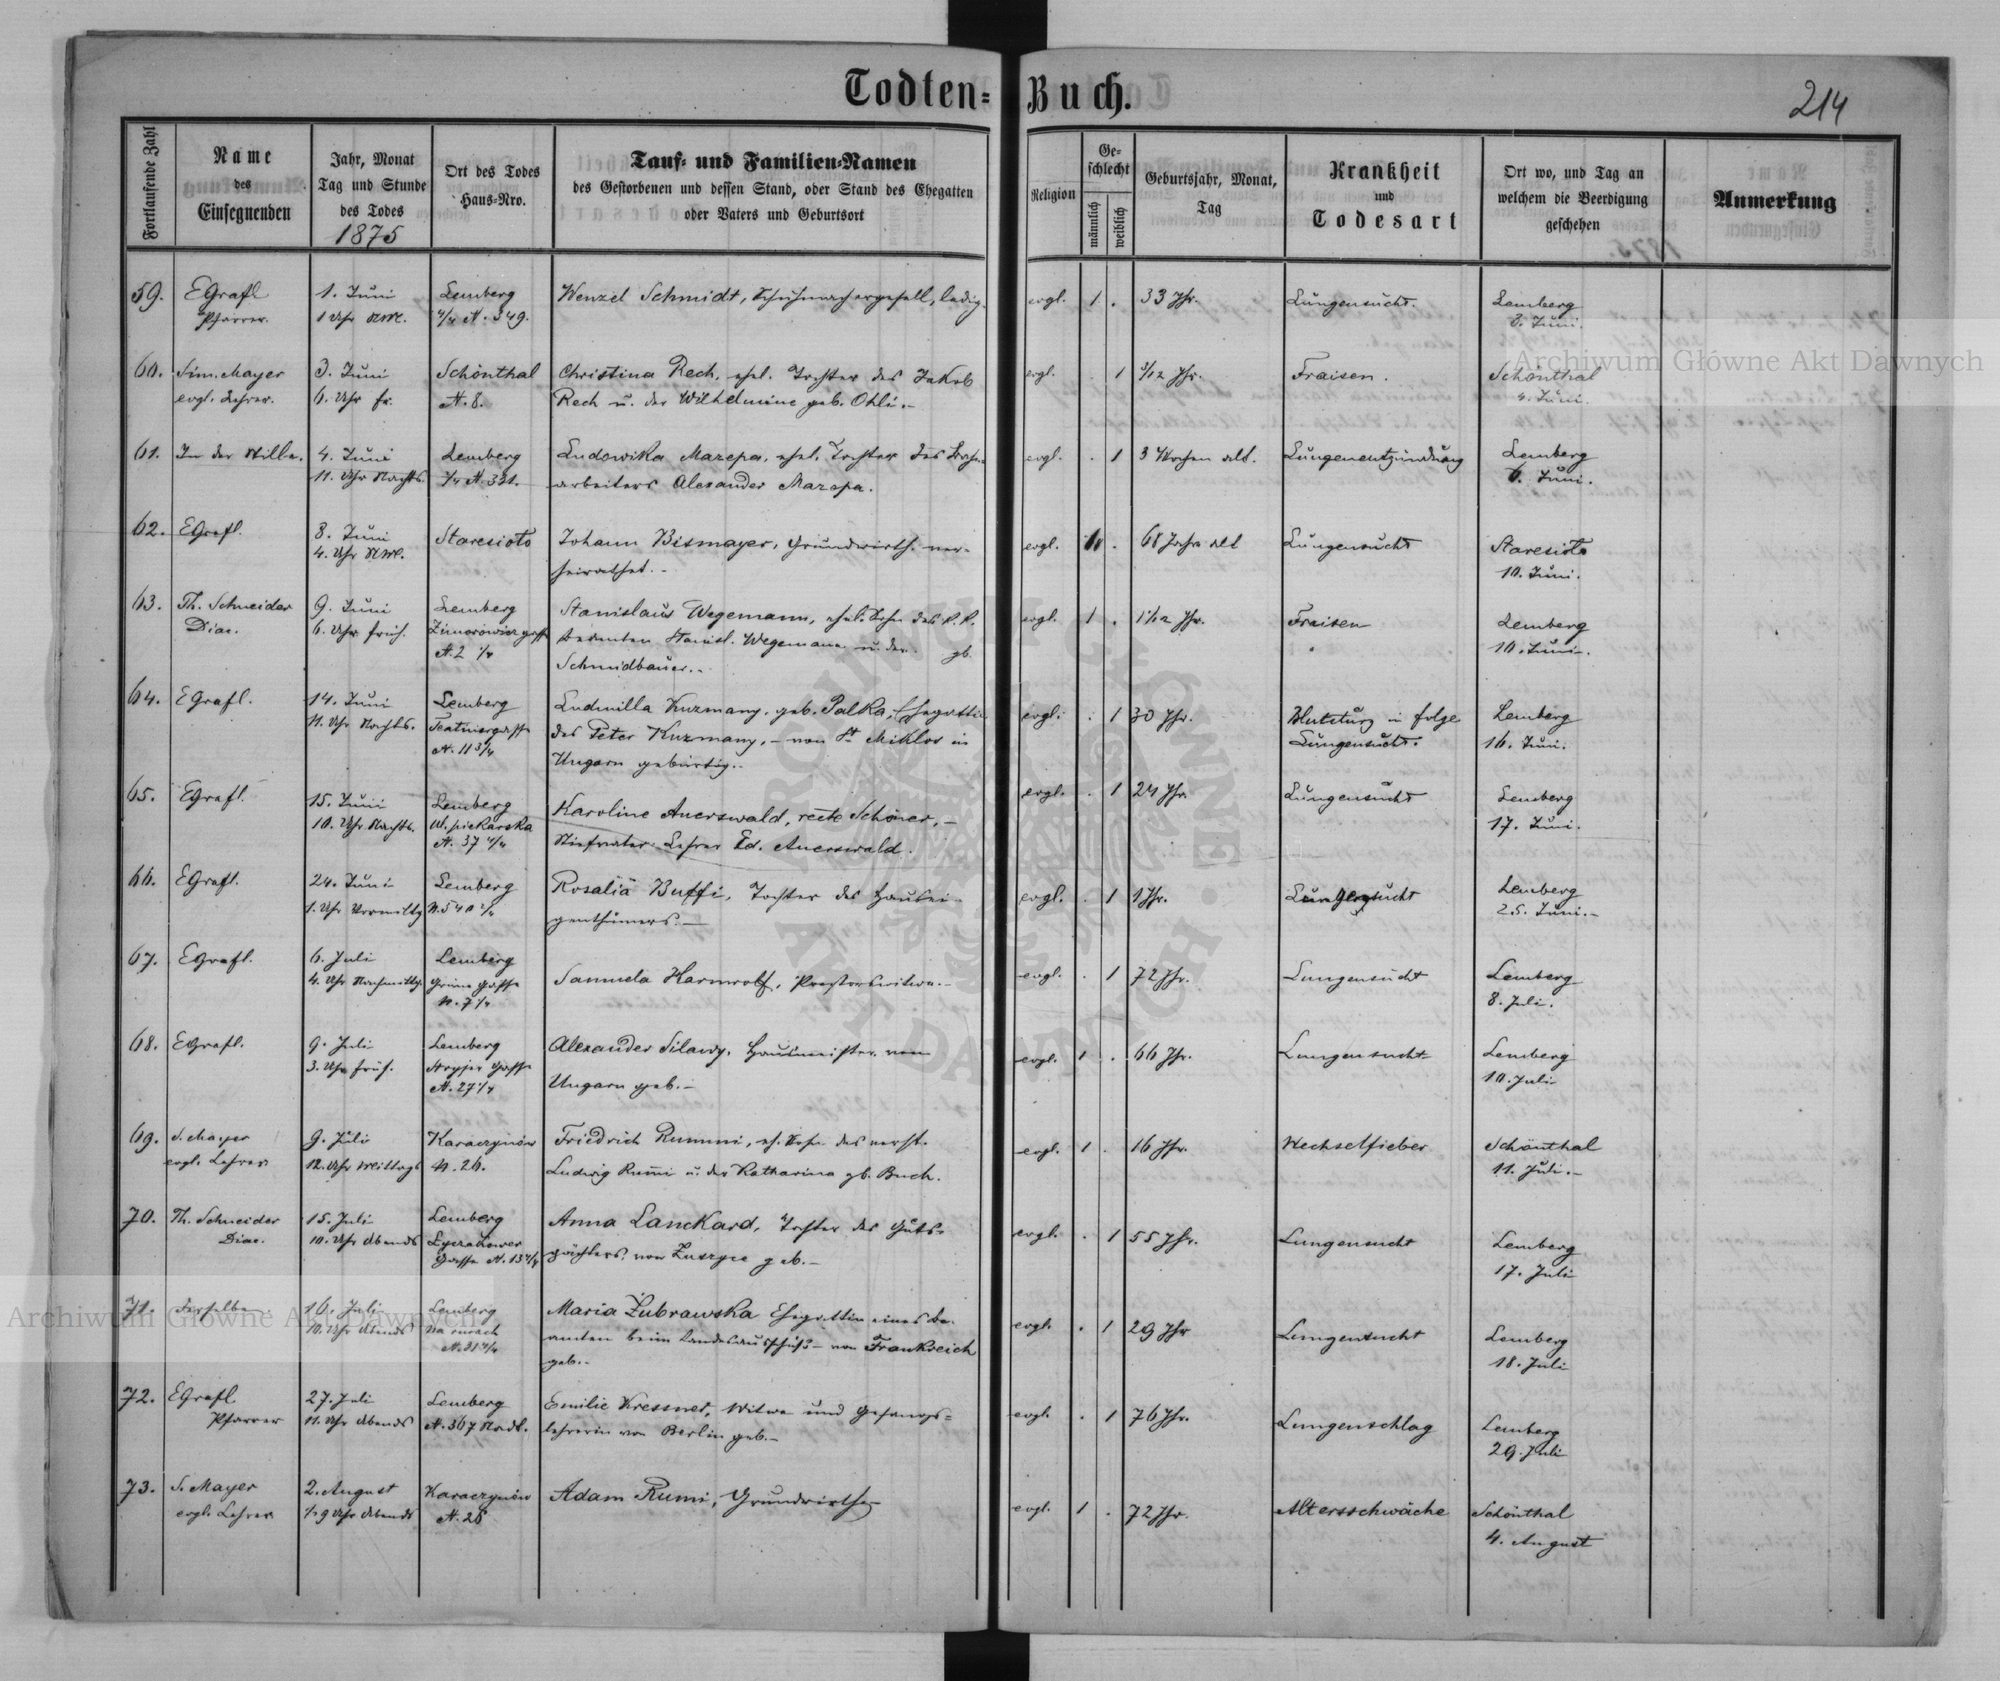 Todten-Buch.
214
Fortlaufende Zahl
Name
des
Einsegnenden
Jahr, Monat
Tag und Stunde
des Todes
1875
Ort des Todes
Haus-Nro.
Tauf- und Familien-Namen
des Gestorbenen und dessen Stand, oder Stand des Ehegatten
oder Vaters und Geburtsort
Religion
Ge-
schlecht
männlich
weiblich
Geburtsjahr, Monat,
Tag
Krankheit
und
Todesart
Ort wo, und Tag an
welchem die Beerdigung
geschehen
Anmerkung
59. EGrafl 1. Juni Lemberg Wenzel Schmidt, Schuhmachergesell, ledig. evgl. 1 . 33 Jhr. Lungensucht. Lemberg
Pfarrer. 1 Uhr NM. 4/4 N. 349. 3. Juni.
60. Sim. Mayer 3. Juni Schönthal Christina Rech, ehel. Tochter des Jakob evgl. . 1 3/12 Jhr. Fraisen. Schönthal
evgl. Lehrer. 6. Uhr fr. N. 8. Rech u. der Wilhelmine geb. Ohli.- 4. Juni.
61. In der Stille. 4. Juni Lemberg Ludowika Mazepa, ehel. Tochter des Bahn- evgl. . 1 3 Wochen alt. Lungenentzündung Lemberg
11. Uhr Nachts. N. 331. arbeiters Alexander Mazepa. 6. Juni.
62. EGrafl. 8. Juni Staresioto Johann Bismayer, Grundwirth, ver- evgl. . 68 Jahre alt Lungensucht Staresioto
4. Uhr NM. heirathet.- 10. Juni.
63. Th. Schneider 9. Juni Lemberg Stanislaus Wegemann, ehel. Sohn des k. k. evgl. 1 . 1/12 Jhr. Fraisen Lemberg
Diac. 6. Uhr früh. Zimorowiczgasse Beamten Stanisl. Wegemann u. der gb. 10. Juni.
N. 2 1/4 Schmidbauer.-
64. EGrafl. 14. Juni Lemberg Ludmilla Kuzmany, geb. Palka, Ehegattin evgl. . 1 30 Jhr. Blutsturz in folge Lemberg
11. Uhr Nachts. des Peter Kuzmany,- von St Miklos in Lungensucht. 16. Juni.
N. 11 3/4 Ungarn gebürtig.-
65. EGrafl. 15. Juni Lemberg Karoline Auerswald, recte Schöner,- evgl. . 1 24 Jhr. Lungensucht Lemberg
10. Uhr Nachts. piekarska Stiefvater: Lehrer Ed. Auerswald. 17. Juni.
N. 37 4/4
66. EGrafl. 24. Juni Lemberg Rosalia Buffi, Tochter des Hausei- evgl. . 1 1 Jhr. Lungensucht Lemberg
1. Uhr Vormittg N. 540 2/4 genthümers.- 25. Juni.-
67. EGrafl. 6. Juli Lemberg Samuela Harmrolf, Pastorswitwe.- evgl. . 1 72 Jhr. Lungensucht Lemberg
4. Uhr Nachmittg. Grüne Gasse 8. Juli.
N. 7 1/4
68. EGrafl. 9. Juli Lemberg Alexander Silawy, Hausmeister von evgl. 1 . 66 Jhr. Lungensucht Lemberg
3. Uhr früh. Stryjer Gasse Ungarn geb.- 10. Juli
N. 27 1/4
69. S. Mayer 9. Juli Karaczynów Friedrich Rummi, eh. Sohn des verst. evgl. 1 . 16 Jhr. Wechselfieber Schönthal
evgl. Lehrer 12. Uhr Mittags N. 26. Ludwig Rumi u. der Katharina gb. Buch. 11. Juli.-
70. Th. Schneider 15. Juli Lemberg Anna Lanckard, Tochter des Guts- evgl. . 1 55 Jhr. Lungensucht Lemberg
Diac. 10. Uhr Abends Lyczakower pächters, von Zuszyce geb.- 17. Juli
Gasse N. 13 4/4
71. Derselbe 16. Juli Lemberg Maria Żubrawska Ehegattin eines Be- evgl. . 1 29 Jhr Lungensucht Lemberg
10. Uhr Abends Na rurach amten beim Landesausschuß- von Frankreich 18. Juli
geb.-
72. EGrafl 27. Juli Lemberg Emilie Kressner, Witwe und Gesangs- evgl. . 1 76 Jhr. Lungenschlag Lemberg
Pfarrer 11. Uhr Abends N. 367 lehrerin von Berlin geb.- 29. Juli
73. S. Mayer 2. August Karaczynów Adam Rumi, Grundwirth evgl. 1 . 72 Jhr. Altersschwäche Schönthal
evgl. Lehrer 1/2 9 Uhr Abends N. 28 4. August
Archiwum Główne Akt Dawnych
Archiwum Główne Akt Dawnych
ARCHIWUM GŁÓWNE AKT DAWNYCH